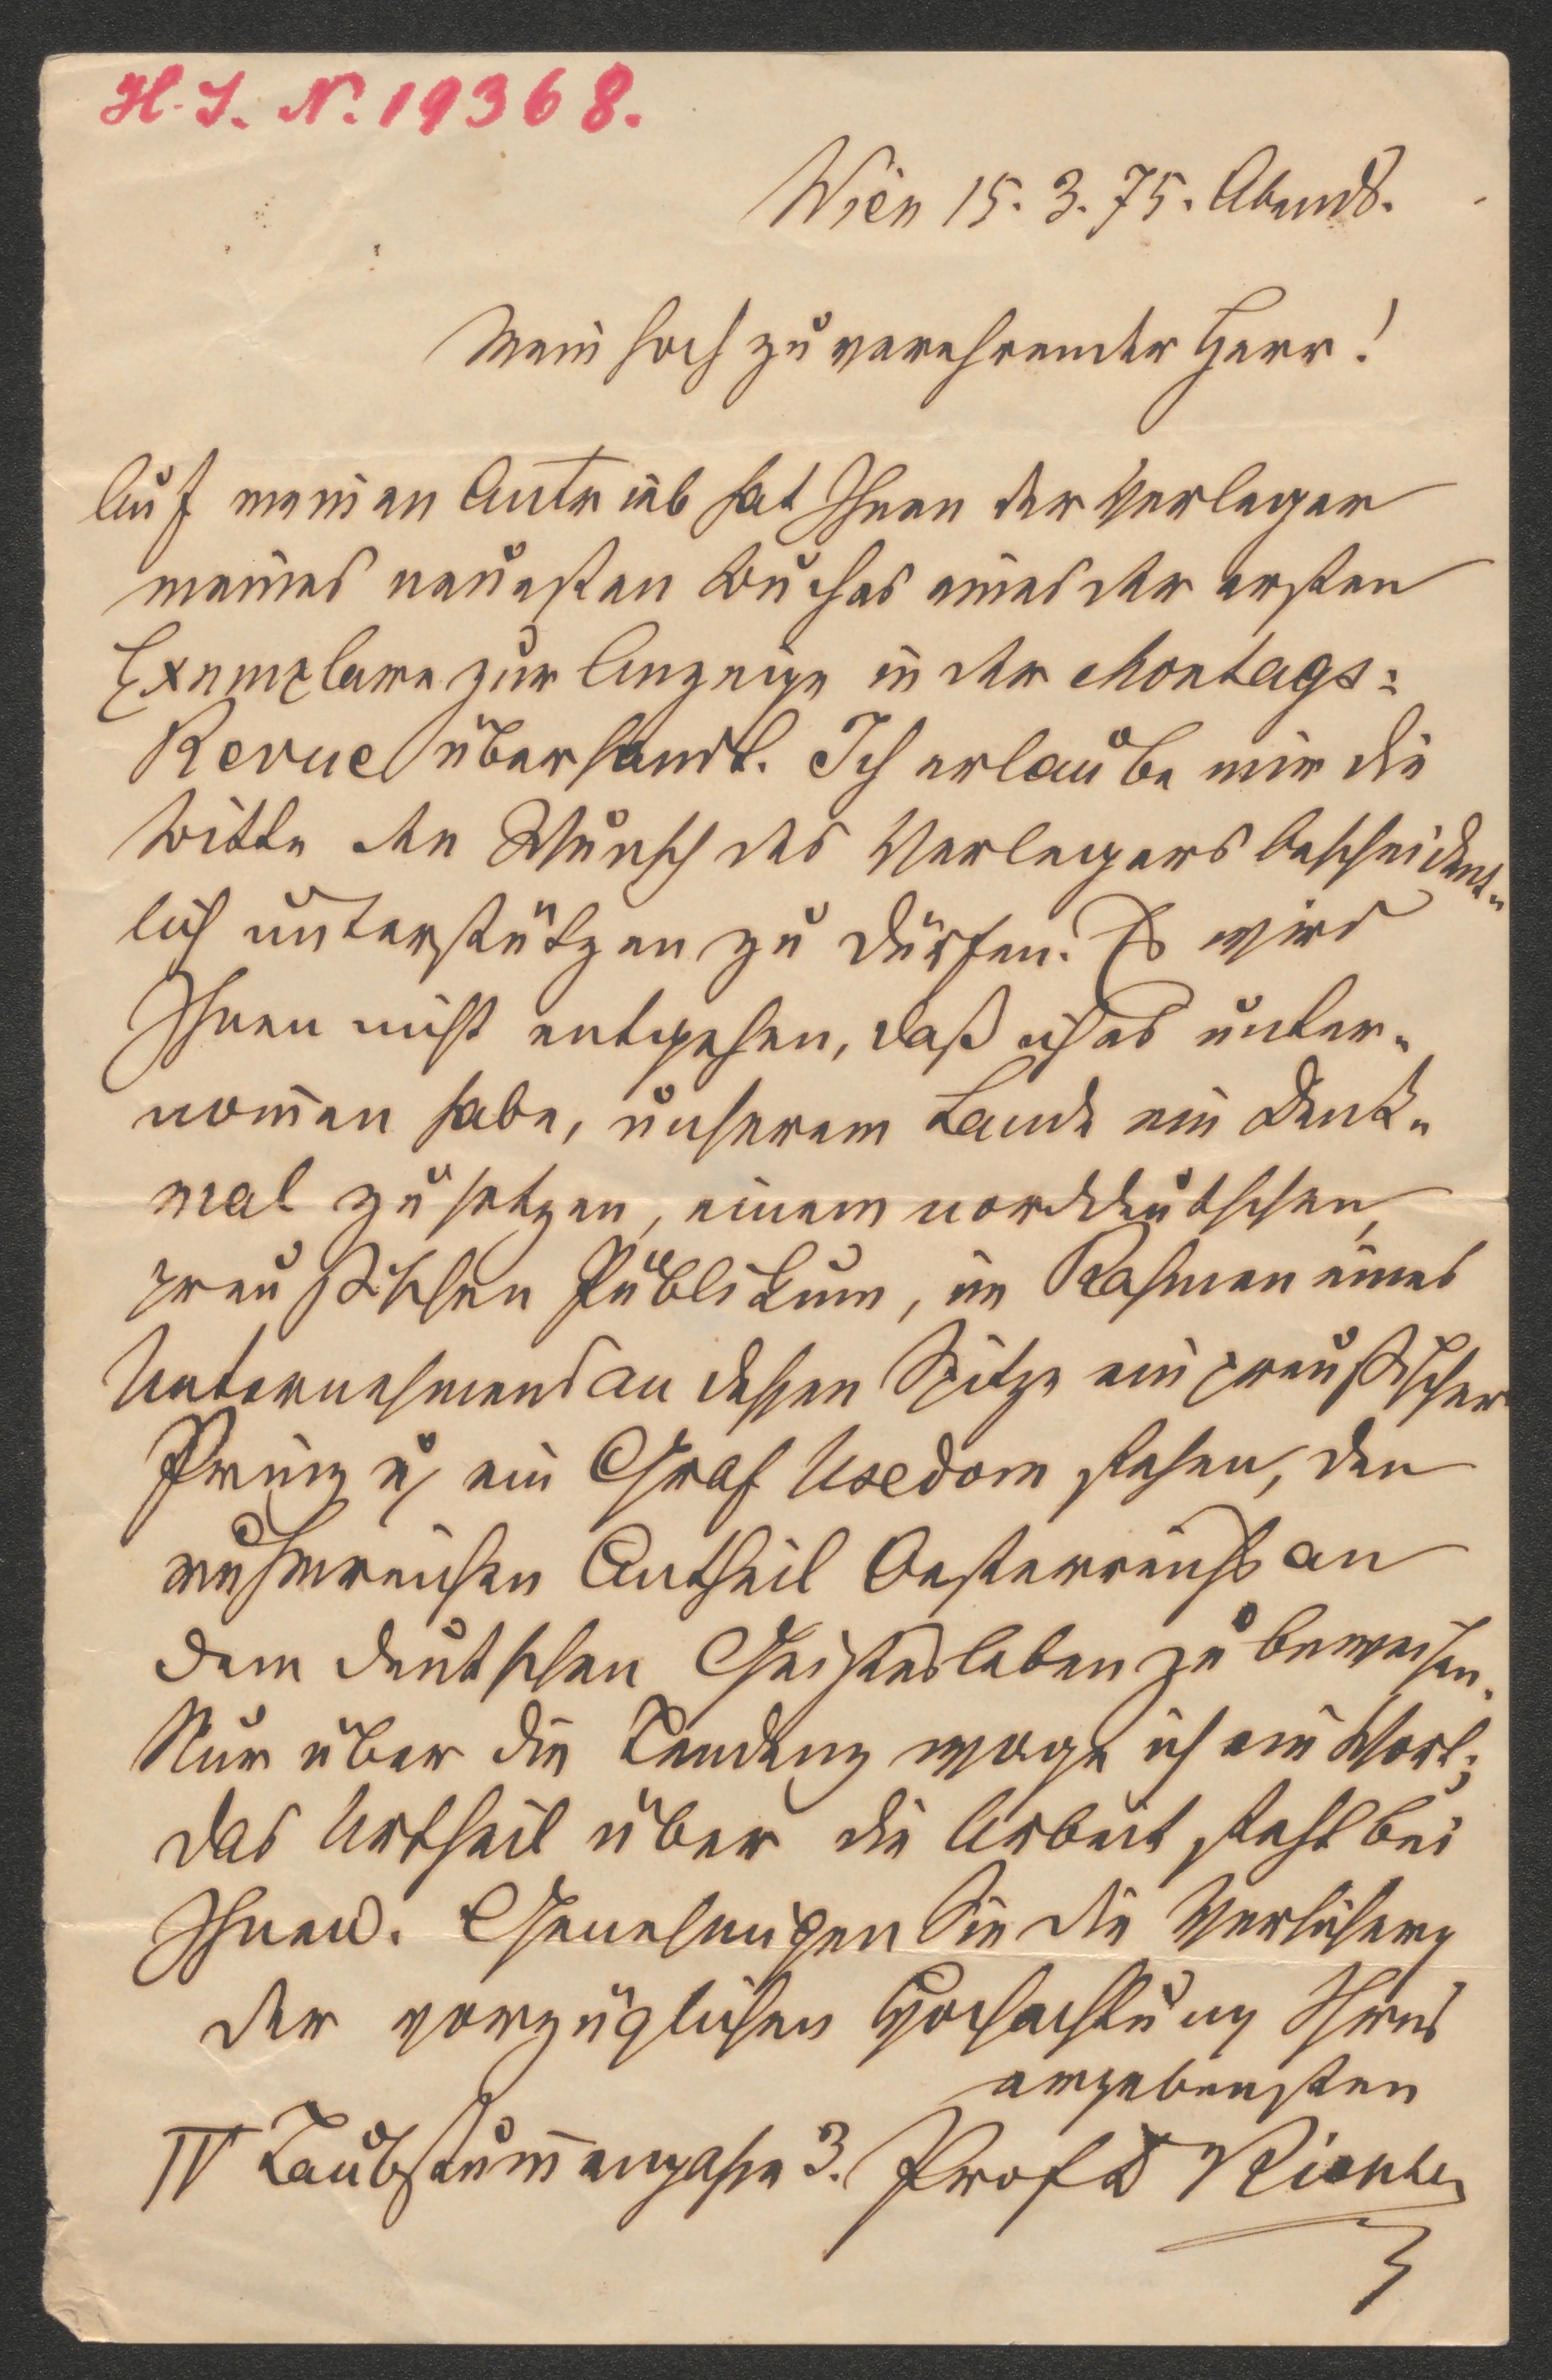 H. I. N. 19368.
Wien 15. 3. 75. Abends.
Mein hoch zu verehrender Herr!
Auf meinen Antrieb hat Ihnen der Verleger
meines neuesten Buches eines der ersten
Exemplare zur Anzeige in der Montags=
Revue übersandt. Ich erlaube mir die
Bitte den Wunsch des Verlegers bescheident-
lich unterstützen zu dürfen. Es wird
Ihnen nicht entgehen, daß ich es unter-
nom̄en habe, unserem Lande ein Denk-
mal zu setzen, einem norddeutschen,
preußischen Publikum, im Rahmen eines
Unternehmens an dessen Spitze ein preußischer
Prinz u. ein Graf Usedom stehen, den
ruhmreichen Antheil Oesterreichs an
dem deutschen Geistesleben zu beweisen.
Nur über die Tendenz wage ich ein Wort;
das Urtheil über die Arbeit steht bei
Ihnen. Genehmigen Sie die Versicherung
der vorzüglichen Hochachtung Ihres
ergebensten
IV Taubstum̄engasse 3. Prof D Richter